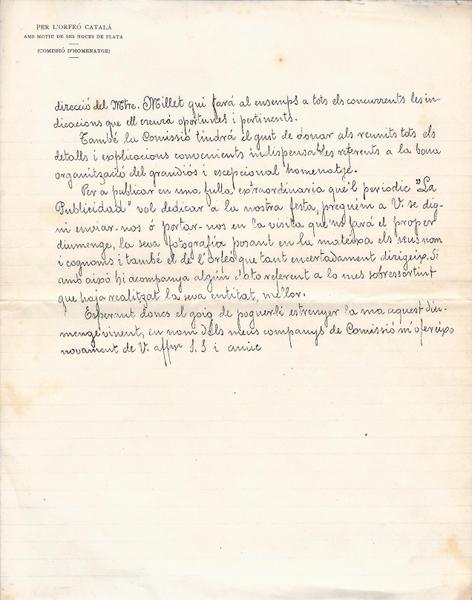 PER L'ORFEÓ CATALÀ
AMB MOTIU DE SES NOCES DE PLATA
(COMISSIÓ D'HOMENATGE)
direcció del Mtre. Millet qui fará al ensemps a tots els concurrents les in-
dicacions que ell creurá oportunes i pertinents.
També la Comissió tindrá el gust de donar als reunits tots els
detalls i explicacions convenients indispensables referents a la bona
organització del grandiós i escepcional homenatge.
Per a publicar en una fulla extraordinaria qué'l periodic "La
Publicidad" vol dedicar a la nostra festa, preguém a V. se dig-
ni enviar-nos ó portar-nos en la visita que'ns fará el proper
diumenge, la seva fotografía posant en la mateixa els seus nom
i cognoms i també el de l'Orfeó que tant encertadament dirigeix. Si
amb aixó hi acompanya algún dato referent a lo mes sobressortint
que haja realitzat la seva entitat, millor.
Esperant doncs el goig de poguer-li estrenyer la ma aquest diu-
menge vinent, en nom dels meus companys de Comissió m'ofereixo
novament de V. affm S. S i amic